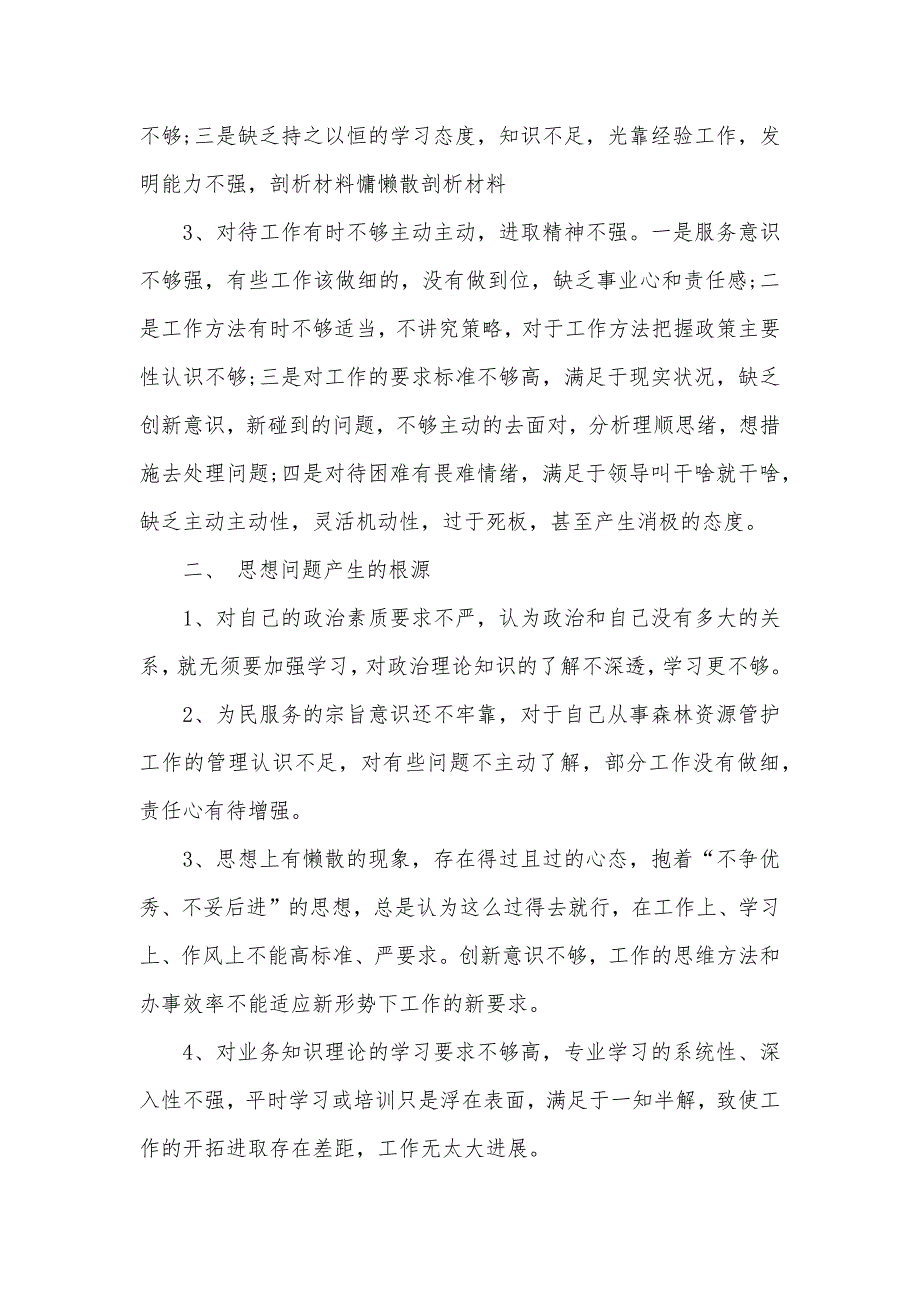 不够;三是缺乏持之以恒的学习态度，知识不足，光靠经验工作，发
明能力不强，剖析材料慵懒散剖析材料
3、对待工作有时不够主动主动，进取精神不强。一是服务意识
不够强，有些工作该做细的，没有做到位，缺乏事业心和责任感;二
是工作方法有时不够适当，不讲究策略，对于工作方法把握政策主要
性认识不够;三是对工作的要求标准不够高，满足于现实状况，缺乏
创新意识，新碰到的问题，不够主动的去面对，分析理顺思绪，想措
施去处理问题;四是对待困难有畏难情绪，满足于领导叫干啥就干啥，
缺乏主动主动性，灵活机动性，过于死板，甚至产生消极的态度。
二、 思想问题产生的根源
1、对自己的政治素质要求不严，认为政治和自己没有多大的关
系，就无须要加强学习，对政治理论知识的了解不深透，学习更不够。
2、为民服务的宗旨意识还不牢靠，对于自己从事森林资源管护
工作的管理认识不足，对有些问题不主动了解，部分工作没有做细，
责任心有待增强。
3、思想上有懒散的现象，存在得过且过的心态，抱着“不争优
秀、不妥后进”的思想，总是认为这么过得去就行，在工作上、学习
上、作风上不能高标准、严要求。创新意识不够，工作的思维方法和
办事效率不能适应新形势下工作的新要求。
4、对业务知识理论的学习要求不够高，专业学习的系统性、深
入性不强，平时学习或培训只是浮在表面，满足于一知半解，致使工
作的开拓进取存在差距，工作无太大进展。